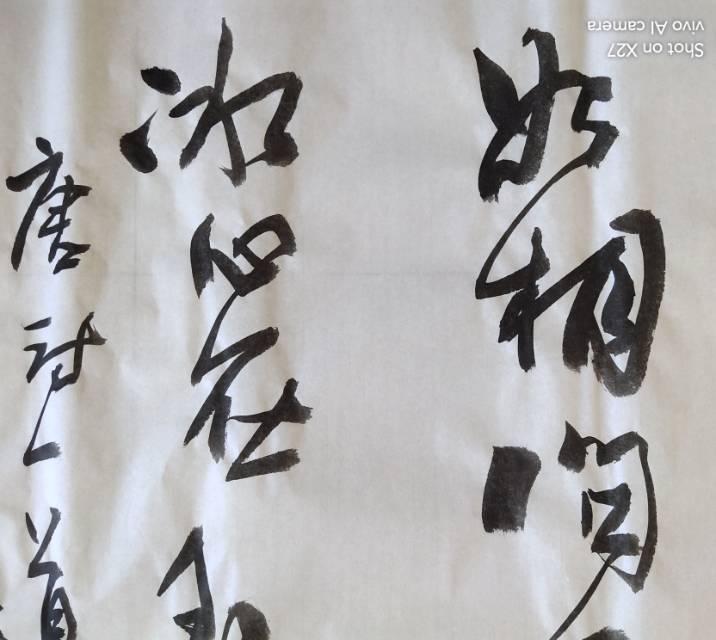 如相问
冰心在
唐诗一首
Shot on X27
vivo AI camera